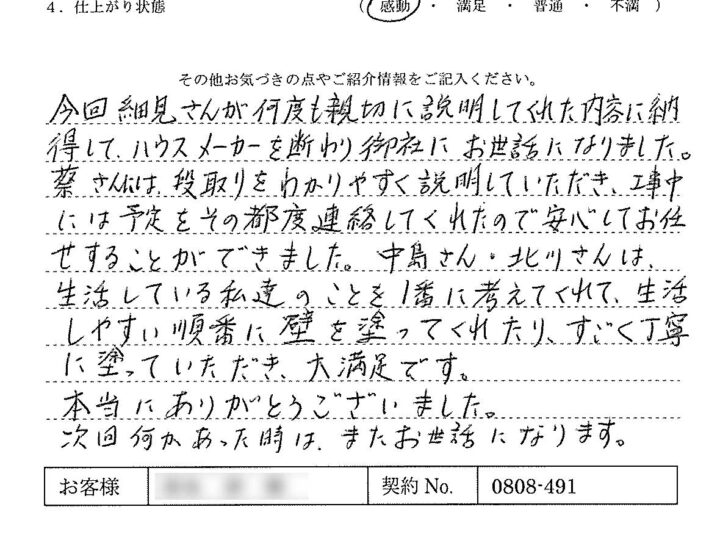 4．仕上がり状態　（ 感動 ・ 満足 ・ 普通 ・ 不満 ）
その他お気づきの点やご紹介情報をご記入ください。
今回細見さんが何度も親切に説明してくれた内容に納
得して、ハウスメーカーを断わり御社にお世話になりました。
蔡さんには、段取りをわかりやすく説明していただき、工事中
には予定をその都度連絡してくれたので安心してお任
せすることができました。中島さん・北川さんは、
生活している私達のことを1番に考えてくれて、生活
しやすい順番に壁を塗ってくれたり、すごく丁寧
に塗っていただき、大満足です。
本当にありがとうございました。
次回何かあった時は、またお世話になります。
お客様　契約 No.　0808-491